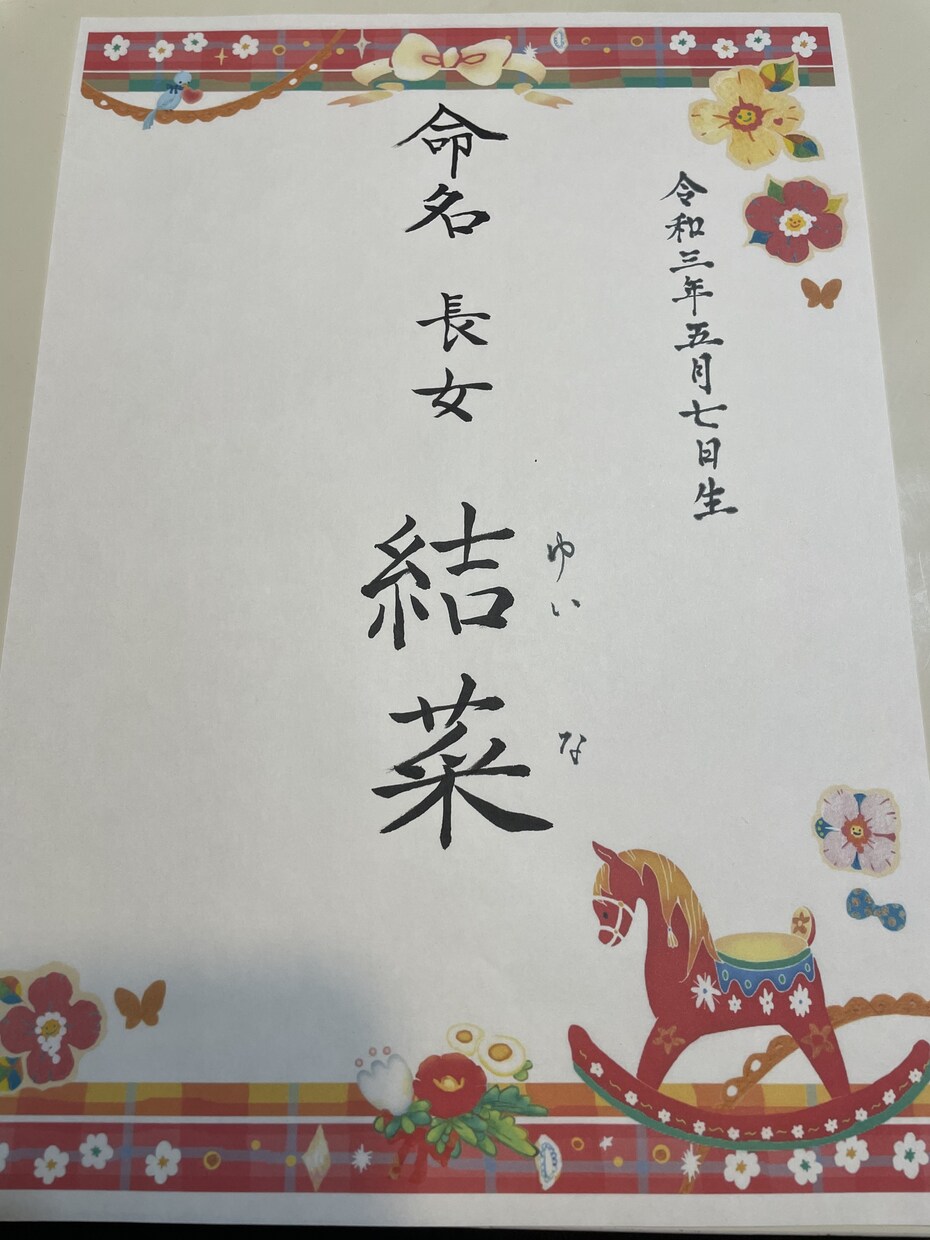 令和三年五月七日生
命名 長女 結菜
ゆいな